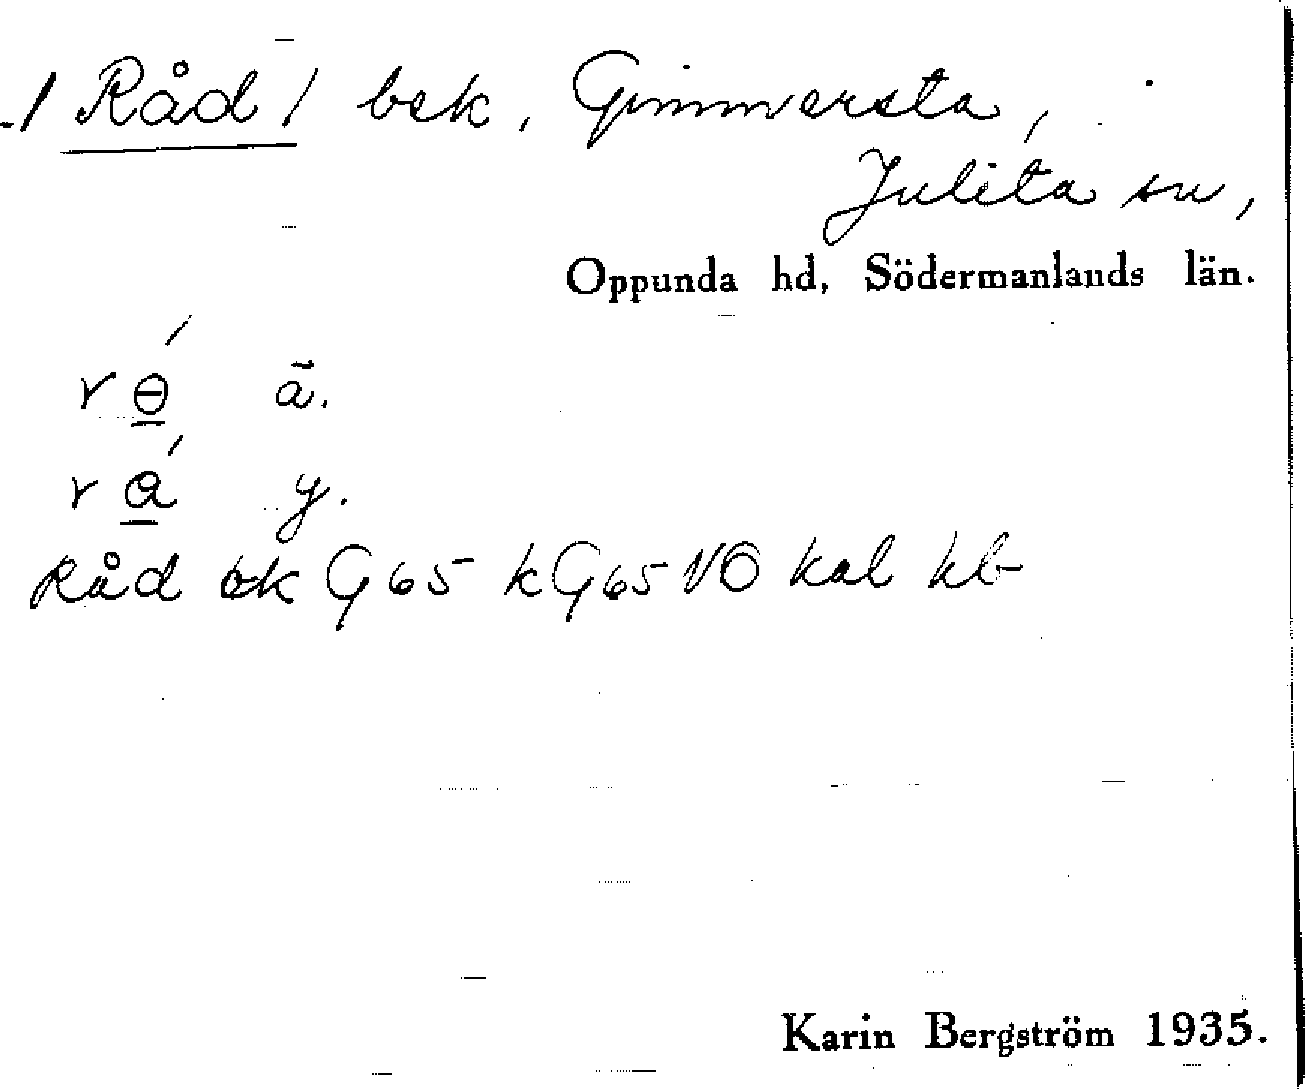 /Råd/ bsk, Gimmersta,
Julita sn,
Oppunda hd, Södermanlands län.
rɵ́ ä.
rá y.
Råd bk G65 kG65 VÖ kal hb
Karin Bergström 1935.